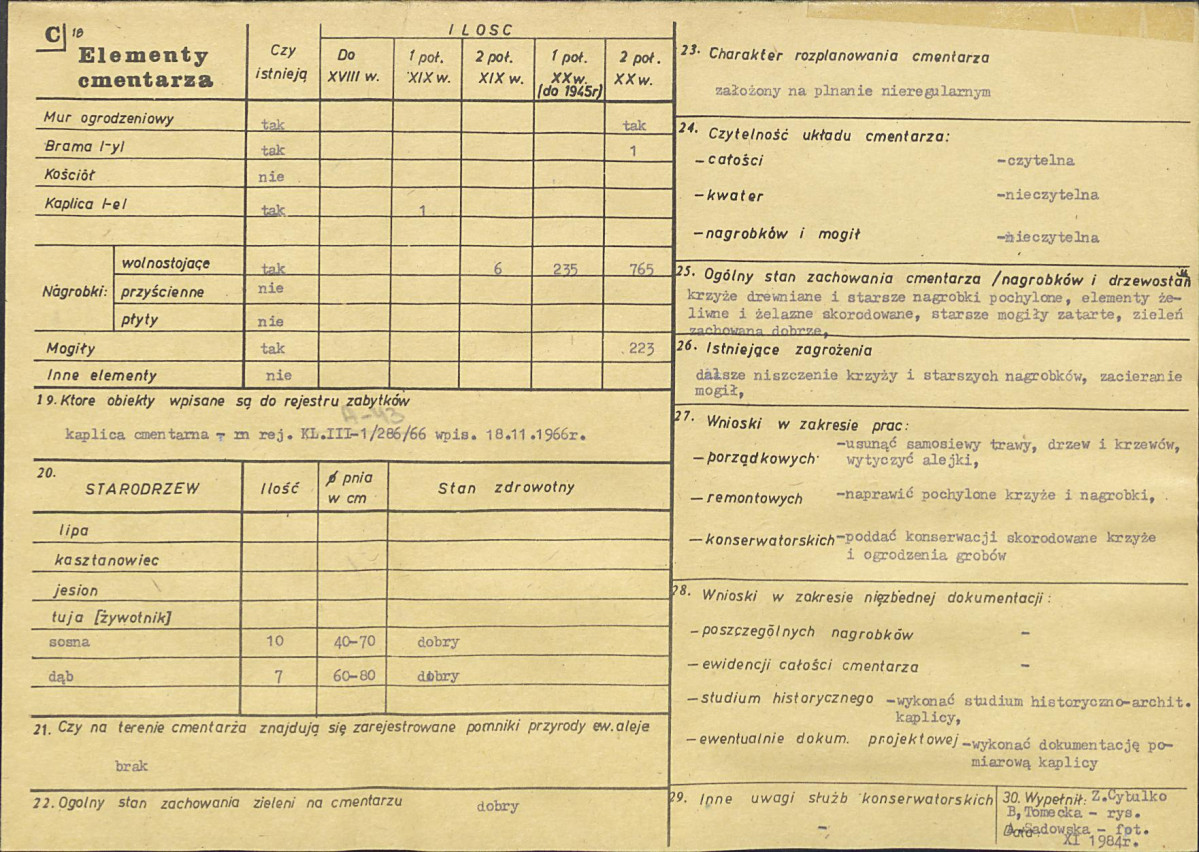 C 18
Elementy
cmentarza
Czy
istnieją
ILOSC
Do
XVIII w.
1 poł.
XIX w.
2 poł.
XIX w.
1 poł.
XXw.
(do 1945r)
2 poł.
XX w.
Mur ogrodzeniowy tak tak
Brama /-y/ tak 1
Kościół nie
Kaplica /-e/ tak 1
Nagrobki: wolnostojące tak 6 235 765
przyścienne nie
płyty nie
Mogiły tak 223
Inne elementy nie
19. Ktore obiekty wpisane są do rejestru zabytków
A-43
kaplica cmentarna - nr rej. KL.III-1/286/66 wpis. 18.11.1966r.
20.
STARODRZEW Ilość ø pnia
w cm Stan zdrowotny
lipa
kasztanowiec
jesion
tuja [żywotnik]
sosna 10 40-70 dobry
dąb 7 60-80 dobry
21. Czy na terenie cmentarza znajdują się zarejestrowane pomniki przyrody ew. aleje
brak
22. Ogolny stan zachowania zieleni na cmentarzu dobry
23. Charakter rozplanowania cmentarza
założony na plnanie nieregularnym
24. Czytelność układu cmentarza:
- całości -czytelna
- kwater -nieczytelna
- nagrobków i mogił -nieczytelna
25. Ogólny stan zachowania cmentarza /nagrobków i drzewostan
krzyże drewniane i starsze nagrobki pochylone, elementy że-
liwne i żelazne skorodowane, starsze mogiły zatarte, zieleń
zachowana dobrze,
26. Istniejące zagrożenia
dalsze niszczenie krzyży i starszych nagrobków, zacieranie
mogił,
27. Wnioski w zakresie prac:
- porządkowych -usunąć samosiewy trawy, drzew i krzewów,
wytyczyć alejki,
- remontowych -naprawić pochylone krzyże i nagrobki,
- konserwatorskich -poddać konserwacji skorodowane krzyże
i ogrodzenia grobów
28. Wnioski w zakresie nięzbednej dokumentacji:
- poszczególnych nagrobków -
- ewidencji całości cmentarza -
- studium historycznego -wykonać studium historyczno-archit.
kaplicy,
- ewentualnie dokum. projektowej -wykonać dokumentację po-
miarową kaplicy
29. Inne uwagi służb konserwatorskich
-
30. Wypełnił: Z.Cybulko
B,Tomecka - rys.
Data: A.Sadowska - fot.
XI 1984r.